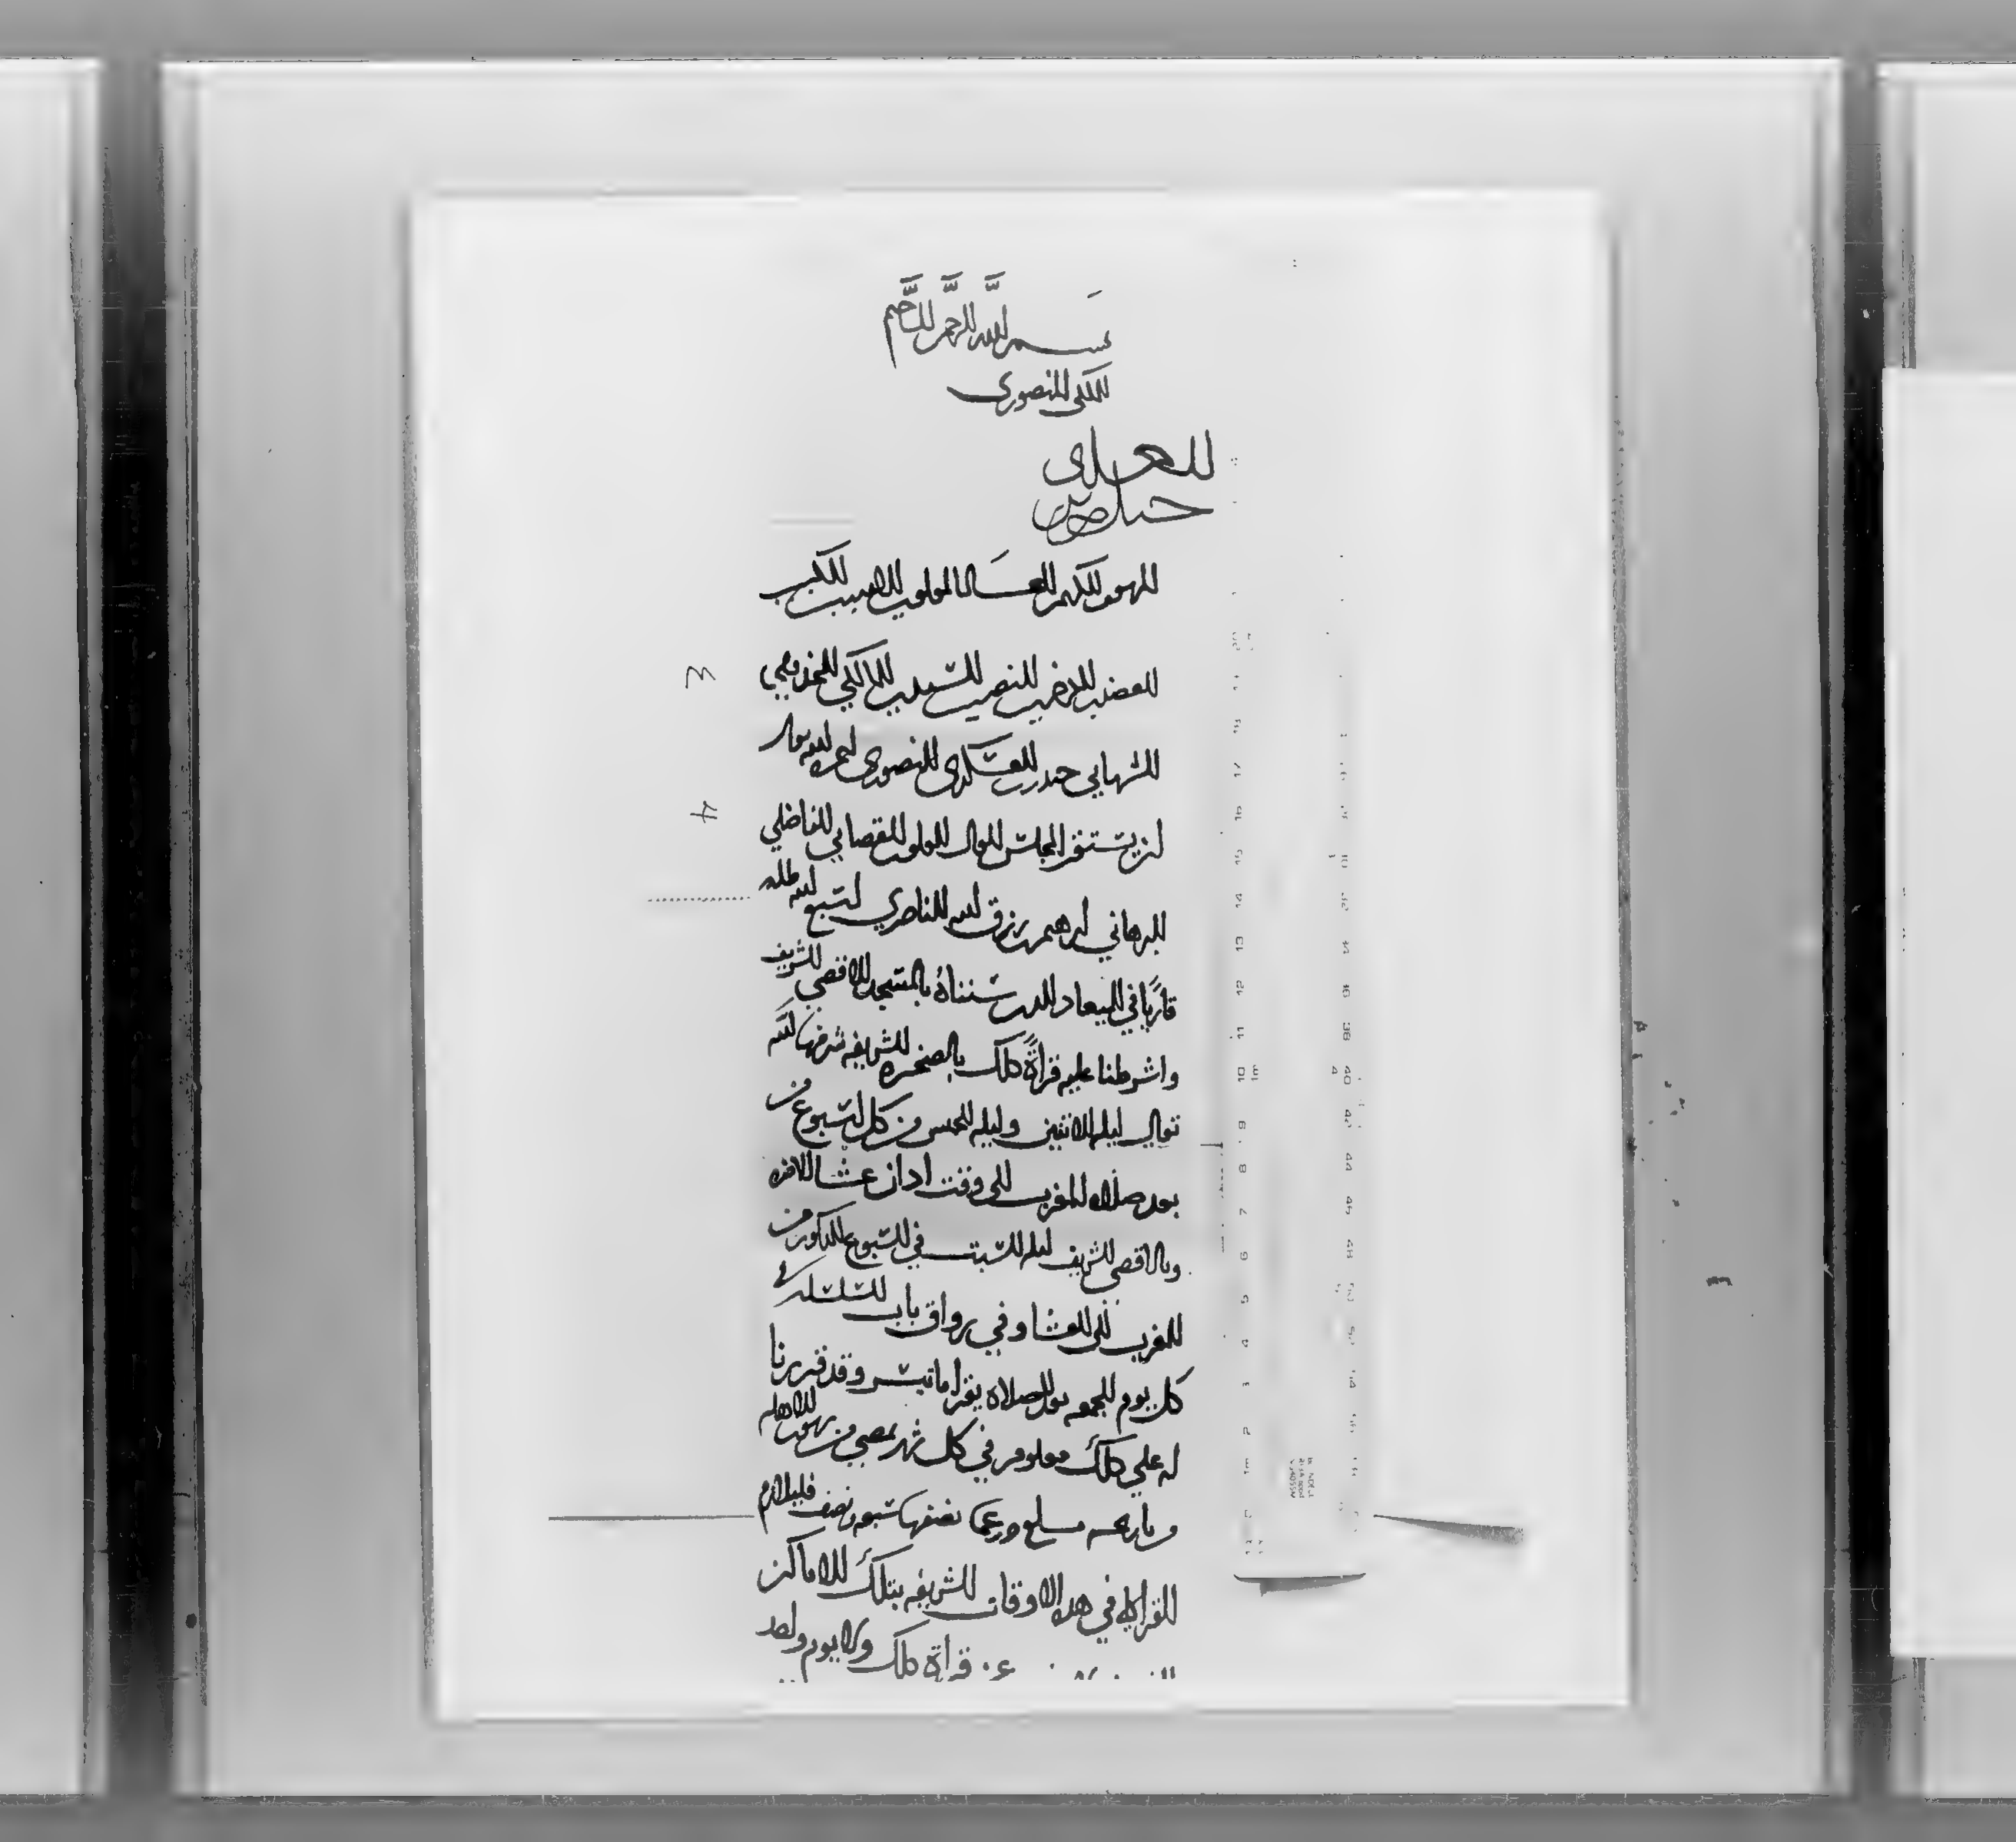 بسم الله الرحمن الرحيم
الملكي المنصوري
العلاى
حيدر
المرسوم الكريم العالى المولوي الاميري الكبيري
العضدي الذخري النصيري السيدي المالكي المخدومي
الشهابي حيدر العسكري المنصوري اعزه الله تعالى
ان يستقر المجلس العالي المولوي القضايي الفاضلي
البرهاني ابرهيم بن رزق الله الناصري اسبغ الله ظله
قارئا في الميعاد الذي سنناه بالمسجد الاقصى الشريف
واشرطنا عليه قراة ذلك بالصخره الشريفه شرفها الله
تعالى ليلة الاثنين وليله الخميس من كل اسبوع من
بعد صلاه المغرب الى وقت اذان عشا الاخره
وبالاقصى الشريف ليله السبت في السبوع المذكور من
المغرب الى العشا وفي رواق باب السلسله في
كل يوم الجمعه بعد الصلاة يقرا ما تيسر وقد قررنا
له على ذلك معلوم في كل شهر يمضي من شهور الاهله
مبلغ درهما نصفها سبعه ونصف فليلازم
القراه في هذه الاوقات الشريفه بتلك الاماكن
عن قراة ذلك ولا يوم واحد
3
4